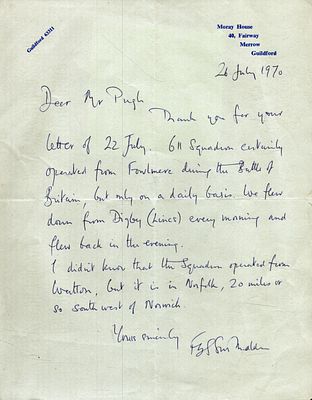 Guildford 62211
Moray House
40, Fairway
Merrow
Guildford
26 July 1970
Dear Mr Pugh
Thank you for your
letter of 22 July. 611 Squadron certainly
operated from Fowlmere during the Battle of
Britain, but only on a daily basis. We flew
down from Digby (Lincs) every morning and
flew back in the evening.
I didn't know that the Squadron operated from
Watton, but it is in Norfolk, 20 miles or
so south west of Norwich.
Yours sincerely